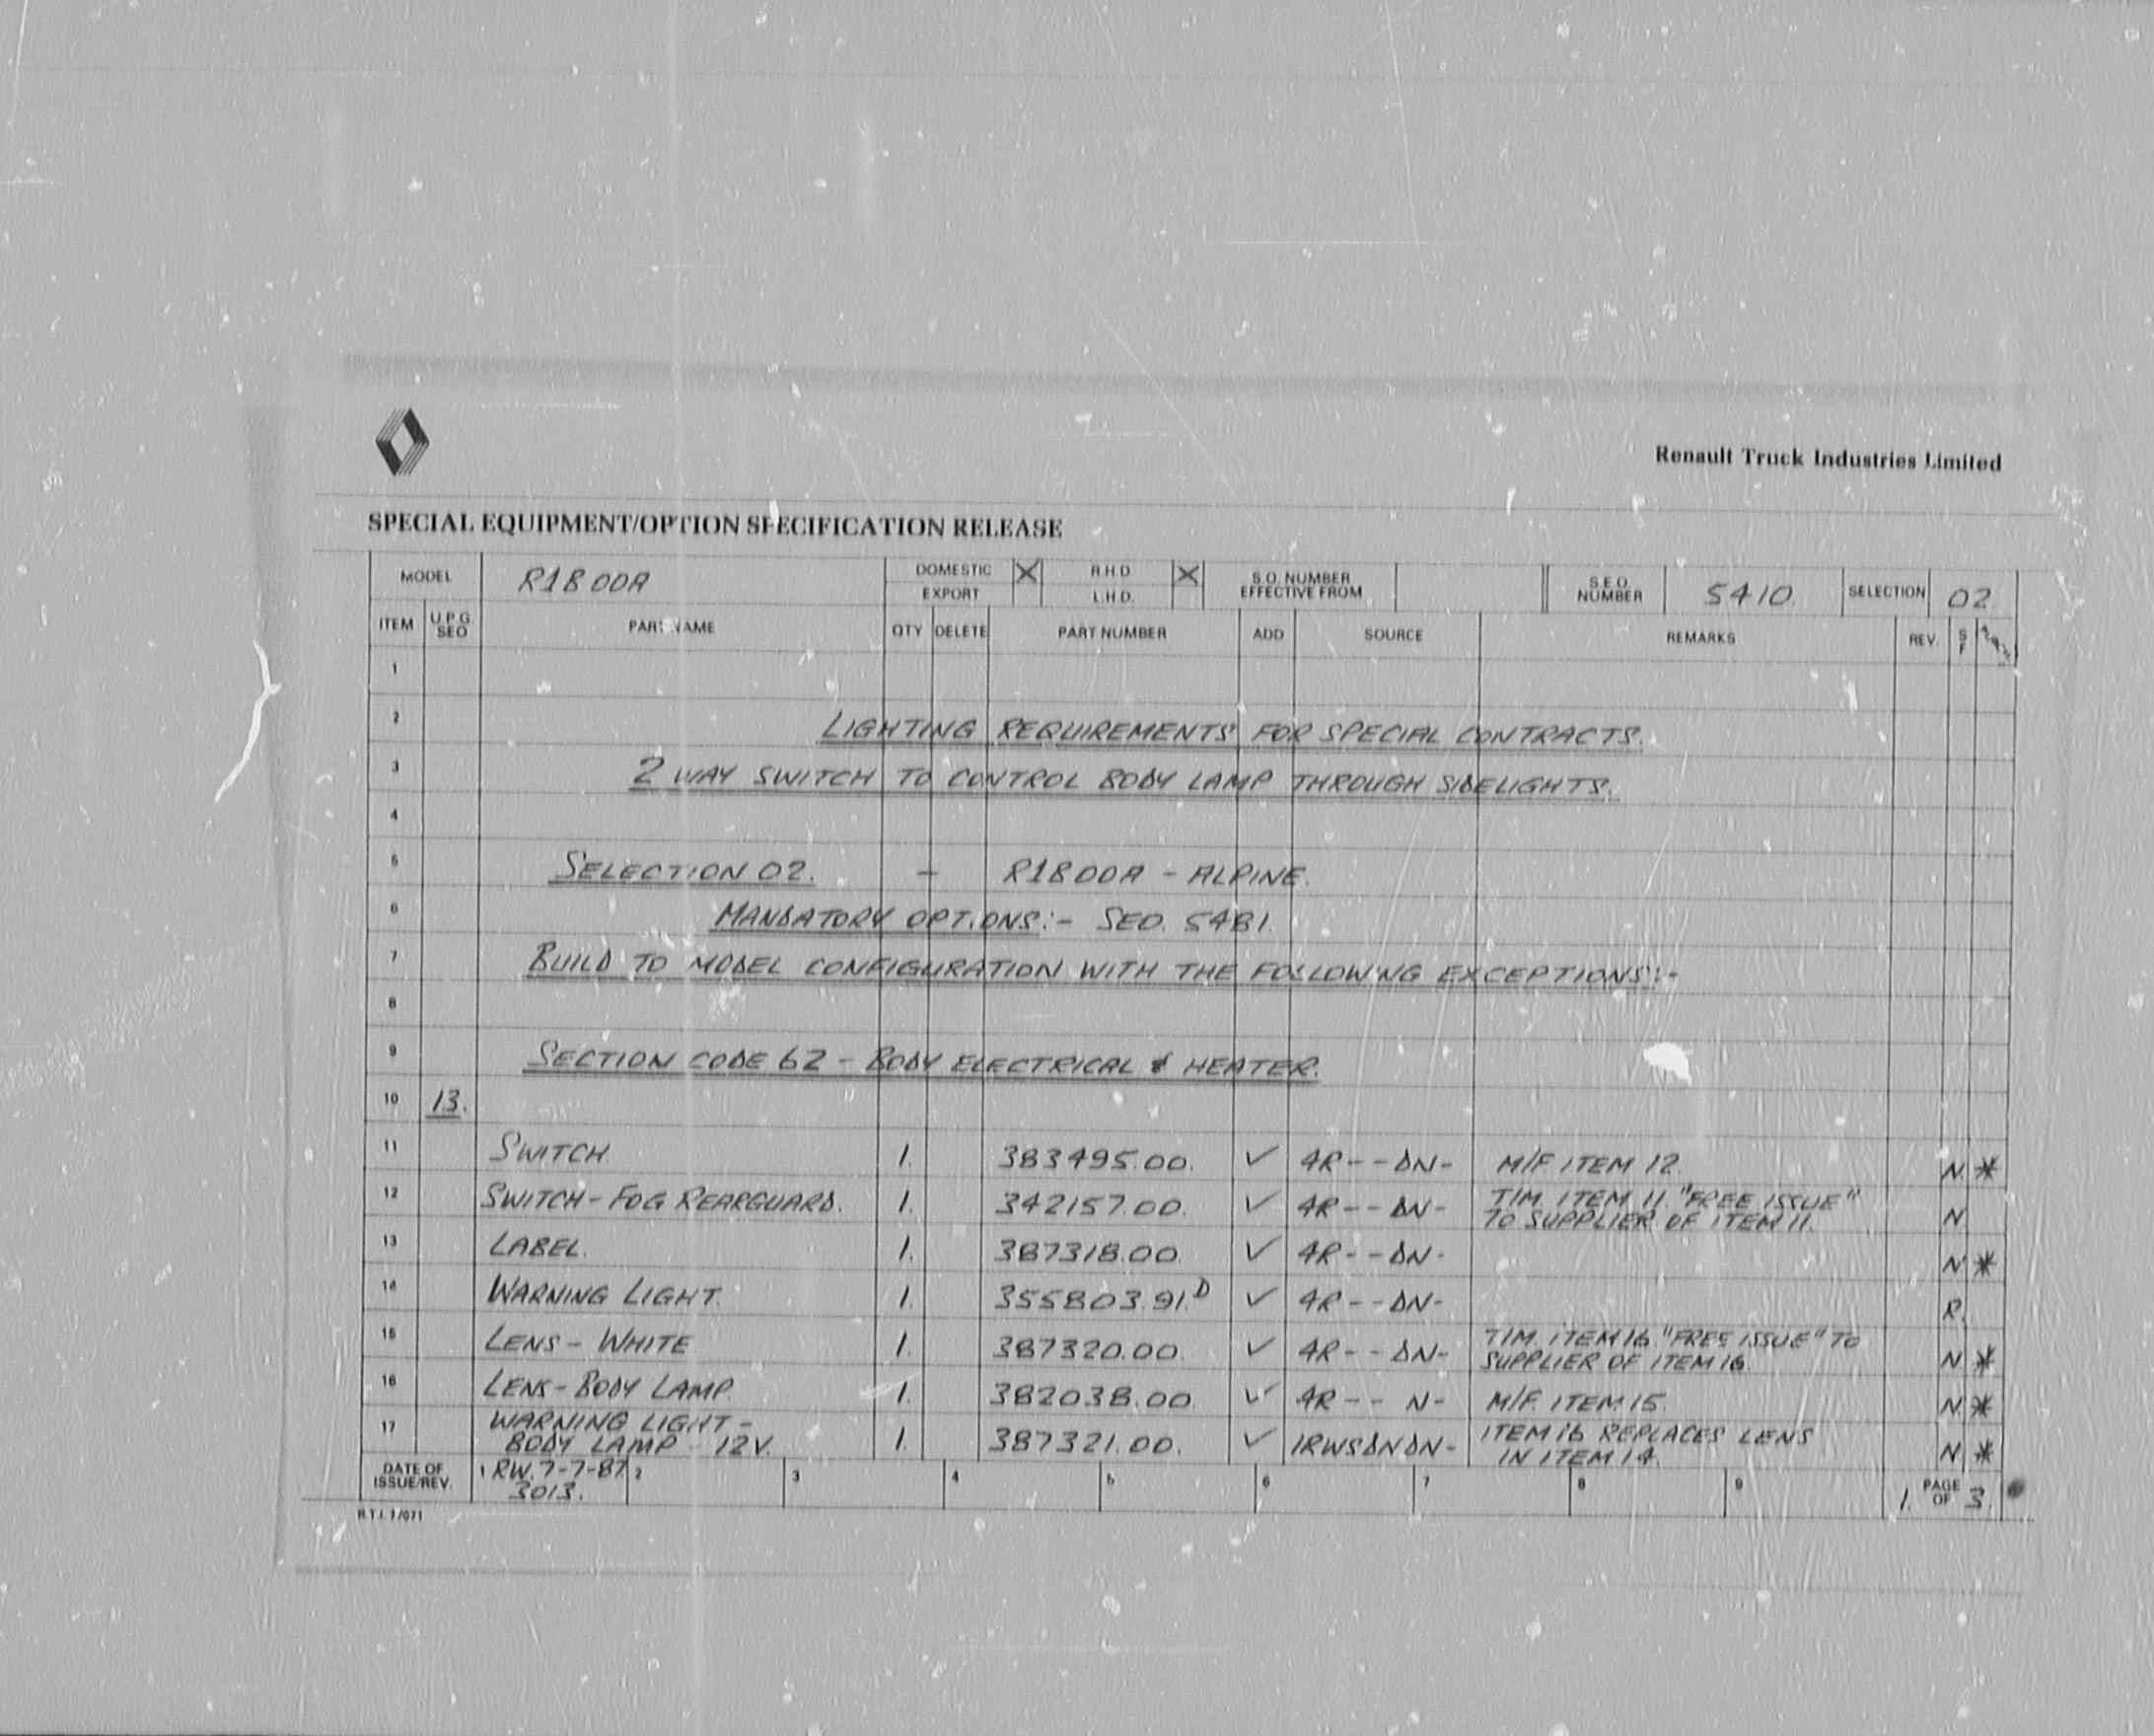 Renault Truck Industries Limited
SPECIAL EQUIPMENT/OPTION SPECIFICATION RELEASE
MODEL R1800A DOMESTIC X R.H.D. X S.O. NUMBER EFFECTIVE FROM S.E.O. NUMBER 5410. SELECTION 02.
EXPORT L.H.D.
ITEM U.P.G SEO PART NAME QTY DELETE PART NUMBER ADD SOURCE REMARKS REV. S F
1
2 LIGHTING REQUIREMENTS FOR SPECIAL CONTRACTS.
3 2 WAY SWITCH TO CONTROL BODY LAMP THROUGH SIDELIGHTS.
4
5 SELECTION 02. – R1800A - ALPINE.
6 MANDATORY OPTIONS:- SEO. 5481.
7 BUILD TO MODEL CONFIGURATION WITH THE FOLLOWING EXCEPTIONS:-
8
9 SECTION CODE 62 - BODY ELECTRICAL & HEATER.
10 13.
11 SWITCH 1. 383495.00. ✓ 4R--DN- M/F ITEM 12. N. *
12 SWITCH - FOG REARGUARD. 1. 342157.00. ✓ 4R--DN- T/M. ITEM 11. "FREE ISSUE"
TO SUPPLIER OF ITEM 11. N
13 LABEL. 1. 387318.00. ✓ 4R--DN- N *
14 WARNING LIGHT. 1. 355803.91.D ✓ 4R--DN- R.
15 LENS - WHITE 1. 387320.00. ✓ 4R--DN- T/M. ITEM 16. "FREE ISSUE" TO
SUPPLIER OF ITEM 16. N *
16 LENS - BODY LAMP. 1. 382038.00 ✓ 4R-- N- M/F. ITEM 15. N. *
17 WARNING LIGHT -
BODY LAMP - 12V. 1. 387321.00. ✓ 1RWSDNDN- ITEM 16 REPLACES LENS
IN ITEM 14. N *
DATE OF ISSUE/REV. 1 RW. 7-7-87 2 3 4 5 6 7 8 9 1. PAGE OF 3.
3013.
R.T.I. 7/071